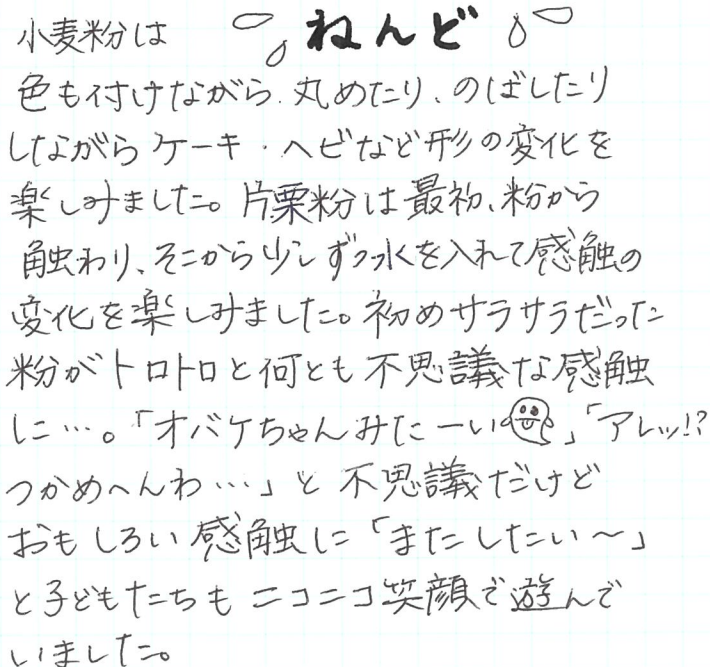 ねんど
小麦粉は
色も付けながら、丸めたり、のばしたり
しながらケーキ・ヘビなど形の変化を
楽しみました。片栗粉は最初、粉から
触わり、そこから少しずつ水を入れて感触の
変化を楽しみました。初めサラサラだった
粉がトロトロと何とも不思議な感触
に…。「オバケちゃんみたーい」「アレッ!?
つかめへんわ…」と不思議だけど
おもしろい感触に「またしたい〜」
と子どもたちもニコニコ笑顔で遊んで
いました。